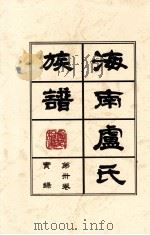 海南盧氏
族譜
第卅卷
實錄